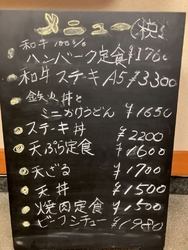 メニュー(税込)
和牛100%
ハンバーグ定食 ¥1760
和牛ステキA5 ¥3300
丼と
ミニかけうどん ¥1650
ステーキ丼 ¥2200
天ぷら定食 ¥1600
天ざる ¥1700
天丼 ¥1500
焼肉定食 ¥1500
ビーフシチュー ¥1980